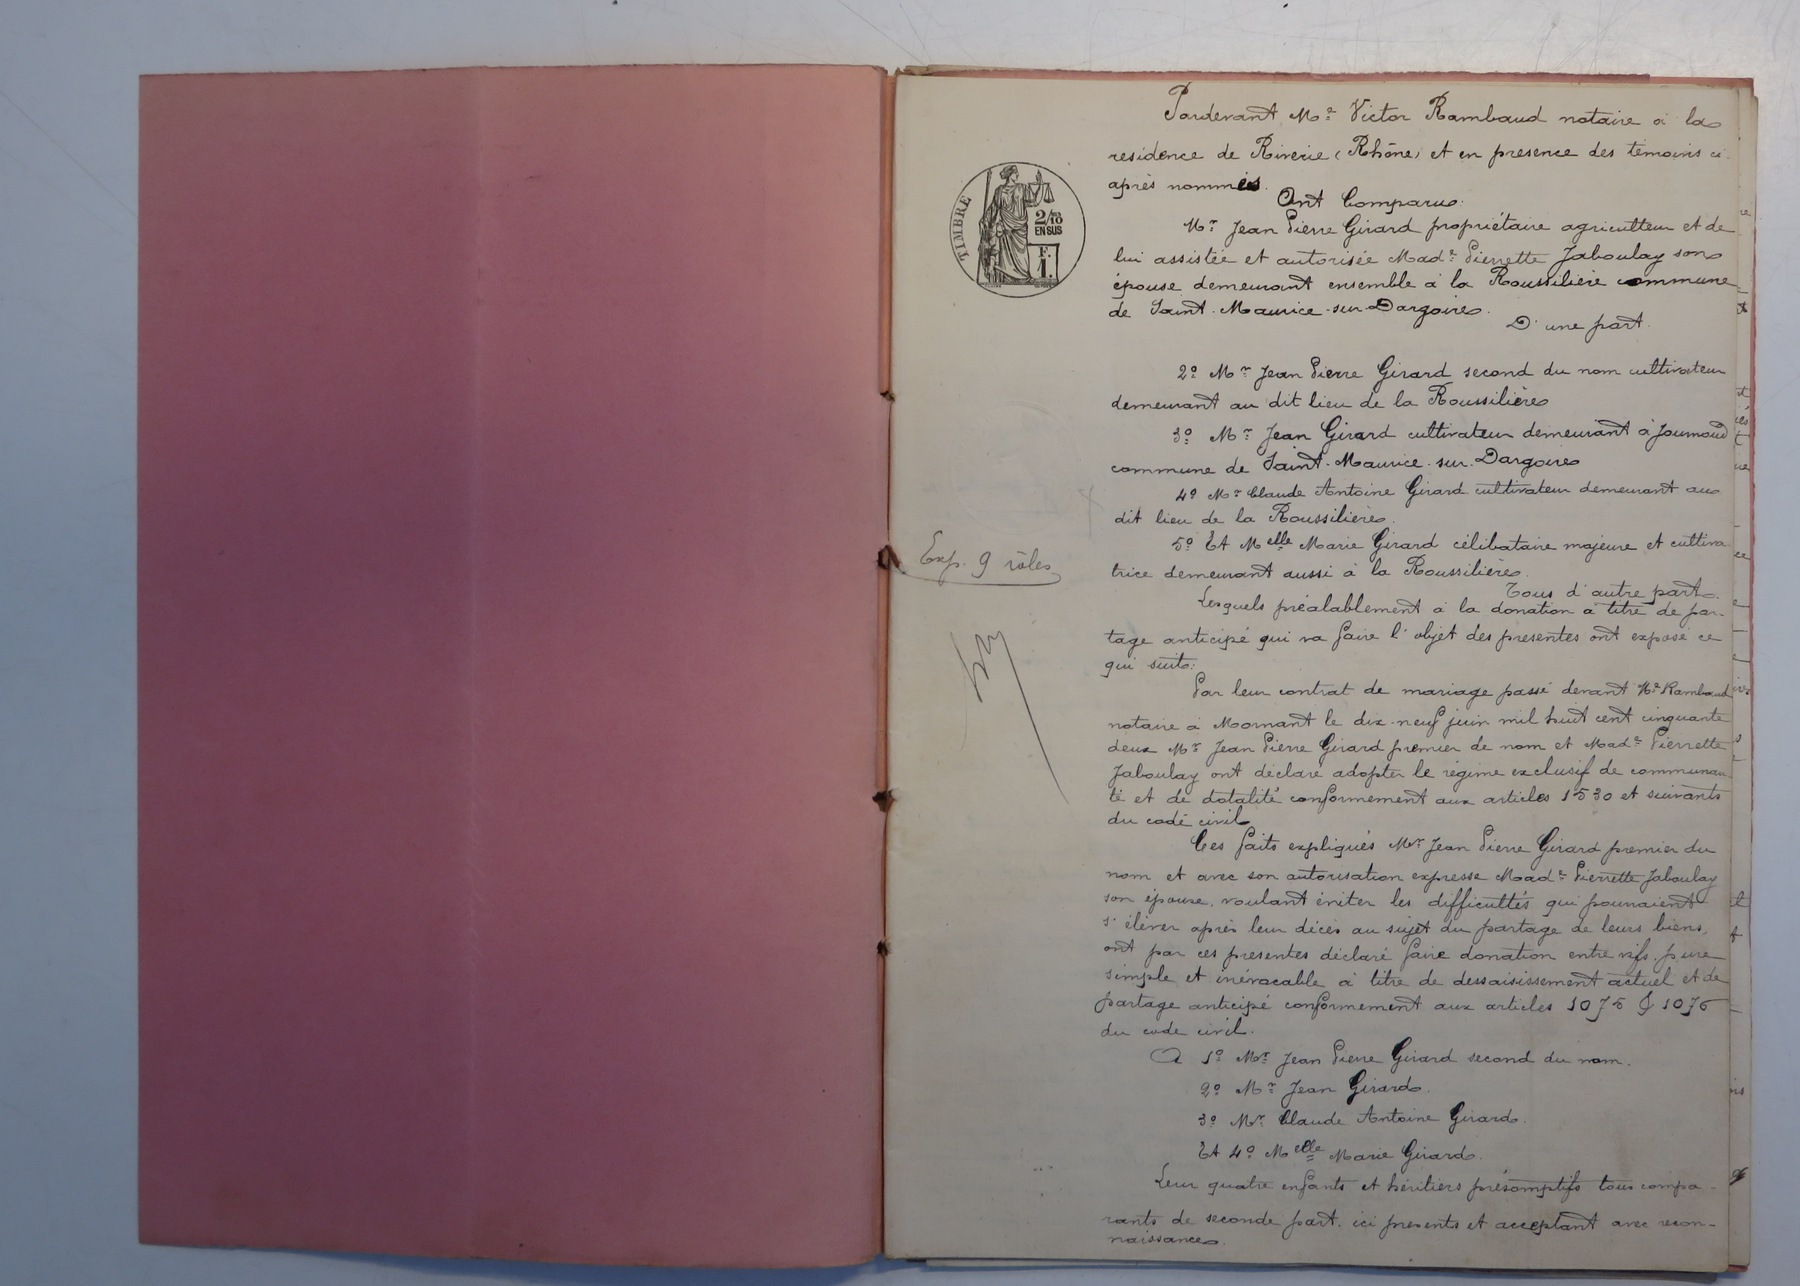 Pardevant Me Victor Rambaud notaire à la
residence de Riverie (Rhône) et en presence des temoins ci-
après nommés.
Ont Comparu:
Mr Jean Pierre Girard propriétaire agriculteur et de
lui assistée et autorisée Made Pierrette Jaboulay son
épouse demeurant ensemble à la Roussilière commune
de Saint-Maurice-sur-Dargoire.
D'une part.
2º Mr Jean Pierre Girard second du nom cultivateur
demeurant au dit lieu de la Roussilière
3º Mr Jean Girard cultivateur demeurant à Journoud
commune de Saint-Maurice-sur-Dargoire
4º Mr Claude Antoine Girard cultivateur demeurant au
dit lieu de la Roussilière.
5º Et Melle Marie Girard célibataire majeure et cultiva-
trice demeurant aussi à la Roussilière.
Tous d'autre part.
Lesquels préalablement à la donation à titre de par-
tage anticipé qui va faire l'objet des presentes ont exposé ce
qui suit:
Par leur contrat de mariage passé devant Me Rambaud
notaire à Mornant le dix-neuf juin mil huit cent cinquante
deux Mr Jean Pierre Girard premier de nom et Made Pierrette
Jaboulay ont déclaré adopter le régime exclusif de communau-
té et de dotalité conformement aux articles 1530 et suivants
du code civil
Ces faits expliqués Mr Jean Pierre Girard premier du
nom et avec son autorisation expresse Made Pierrette Jaboulay
son épouse, voulant éviter les difficultés qui pourraient
s'élever après leur décès au sujet du partage de leurs biens,
ont par ces presentes déclaré faire donation entre vifs, pure
simple et irrévocable à titre de dessaisissement actuel et de
partage anticipé conformement aux articles 1075 & 1076
du code civil.
A 1º Mr Jean Pierre Girard second du nom.
2º Mr Jean Girard.
3º Mr Claude Antoine Girard.
Et 4º Melle Marie Girard.
Leur quatre enfants et héritiers présomptifs tous compa-
rants de seconde part, ici presents et acceptant avec recon-
naissance.
TIMBRE
2/10
EN SUS
F.
1.
Exp. 9 rôles